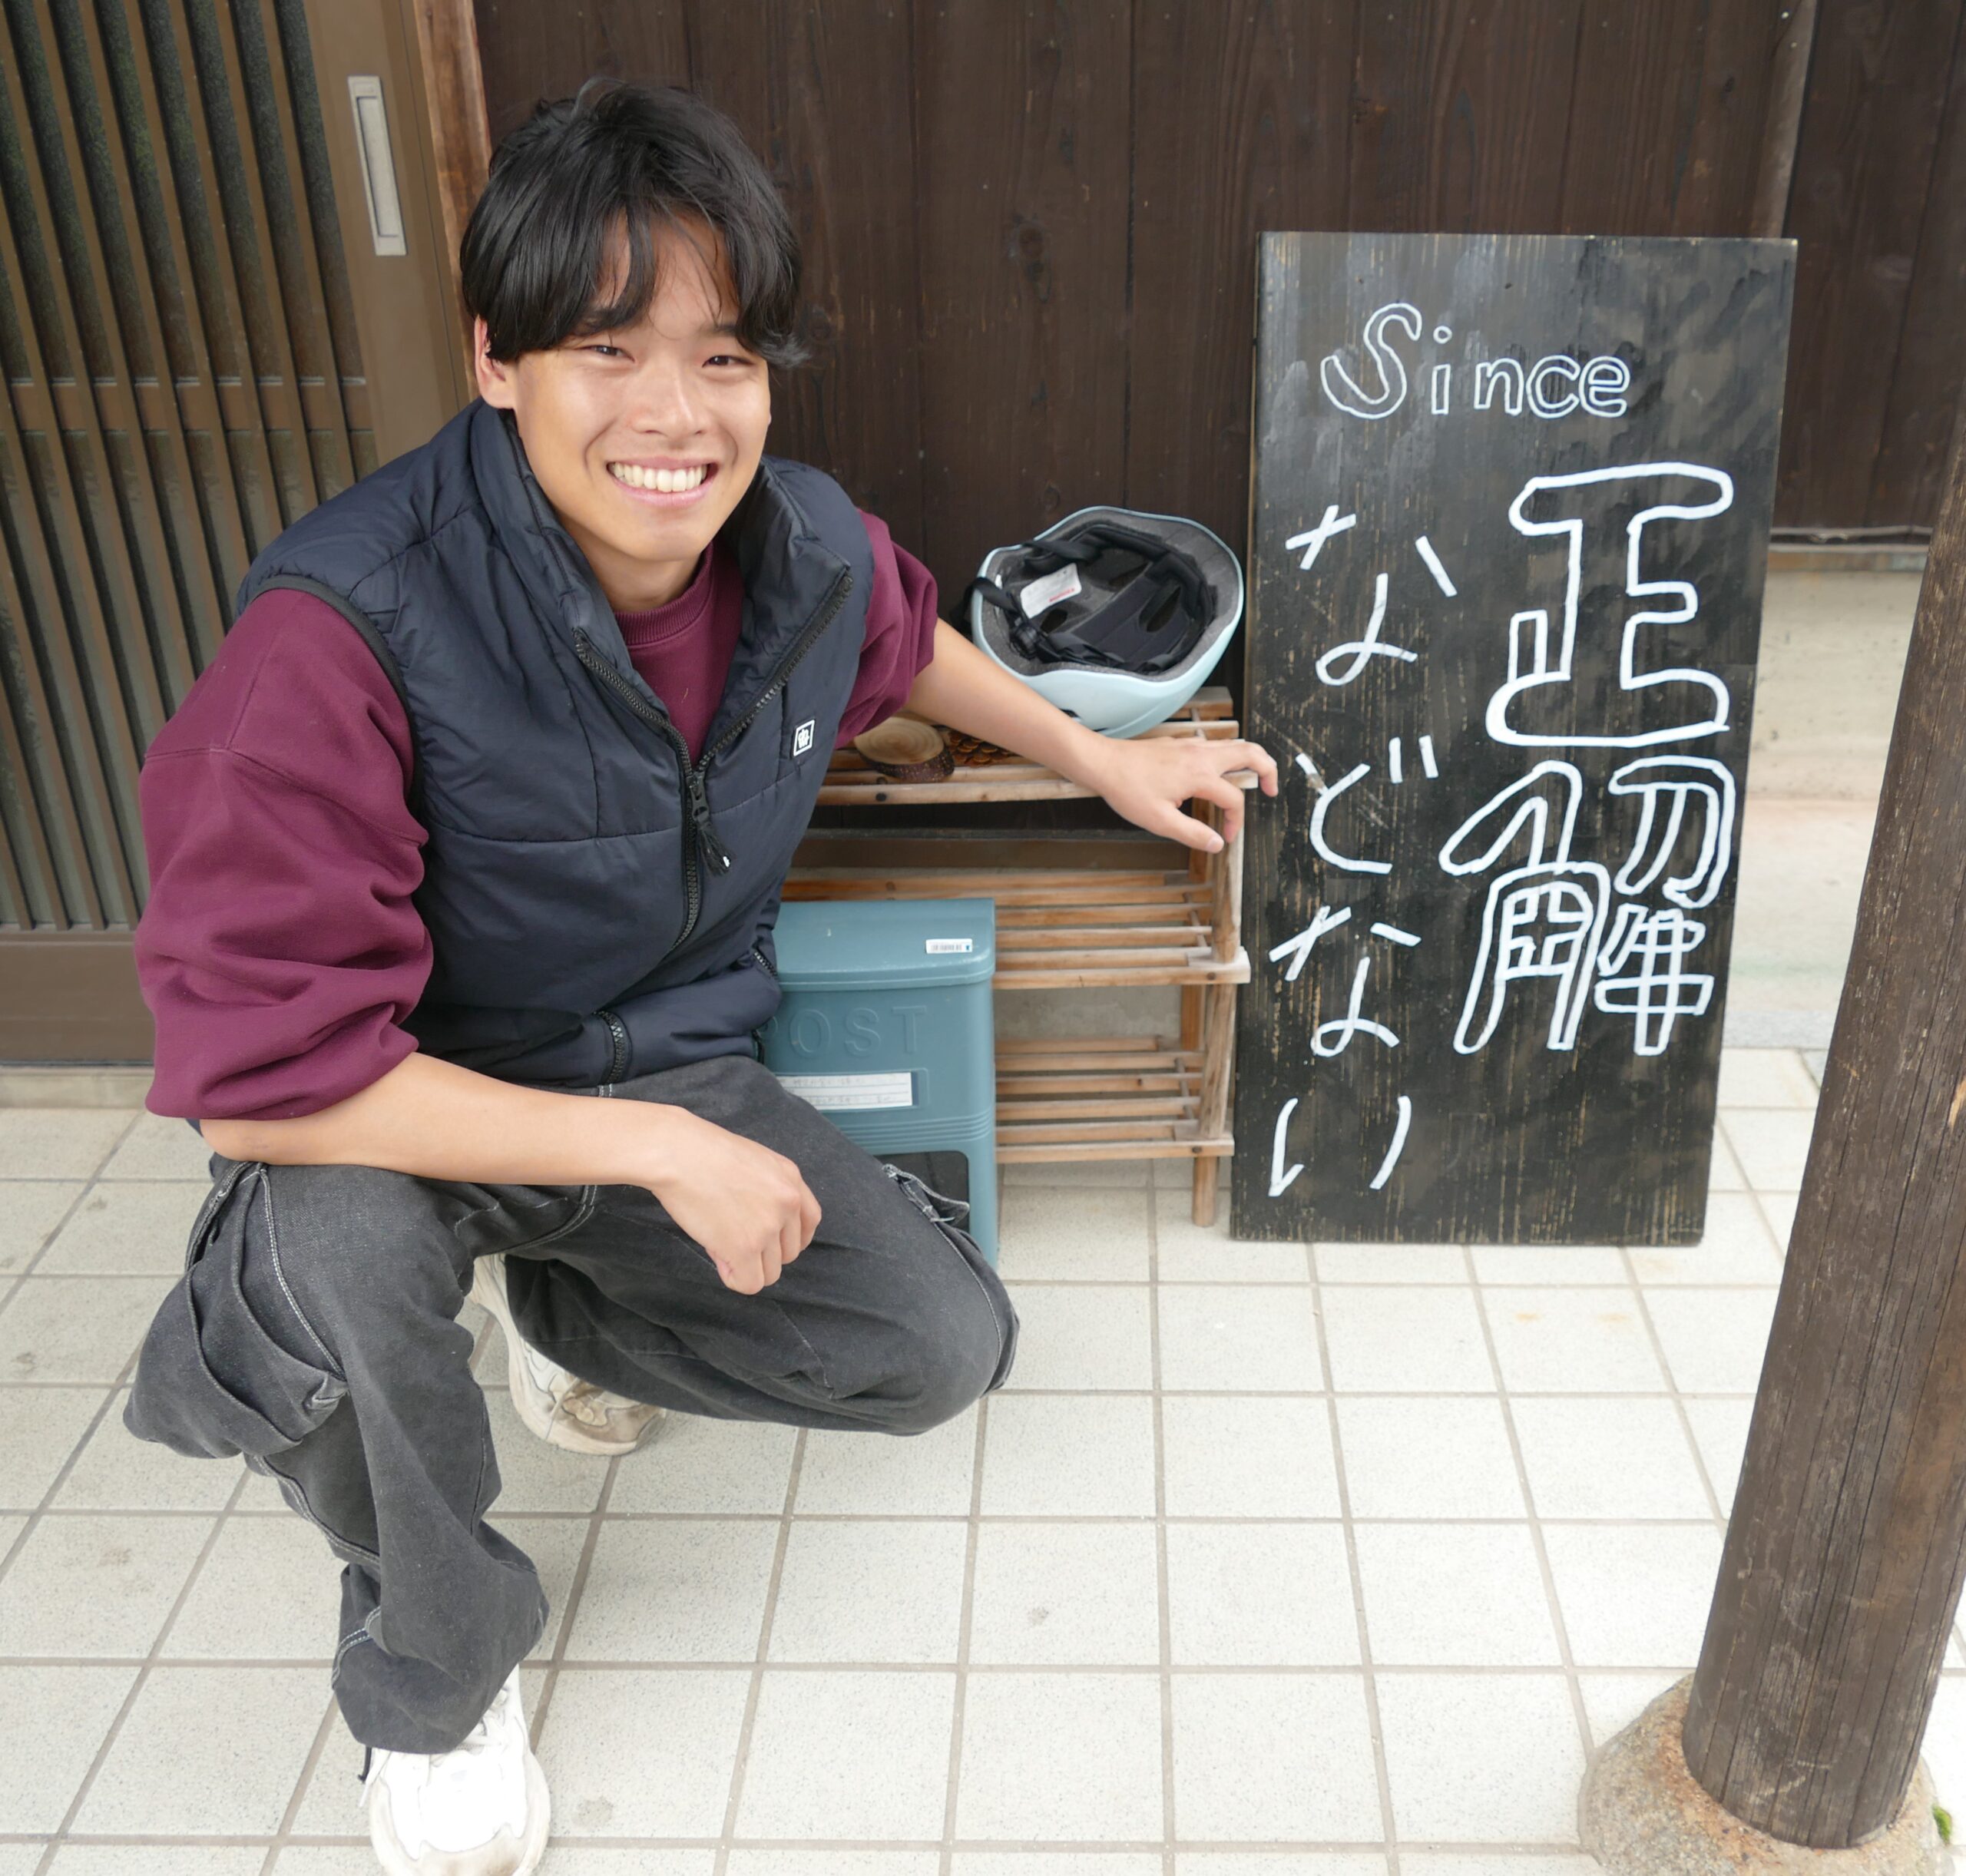 Since
正解
などない
POST